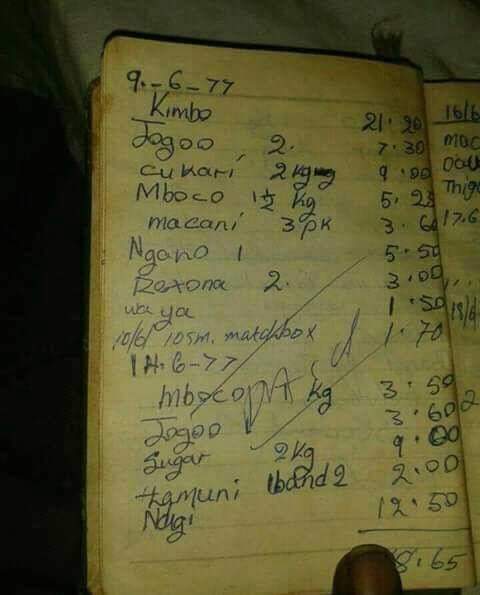 9.-6-77
Kimbo 21.20
Jogoo 2. 7.30
cukari 2kg 9.00
Mboco 1½ kg 5.25
macani 3pk 3.60
Ngano 1 5.50
Rexona 2. 3.00
waya 1.50
10/6 10sm. matchbox 1.70
14.6-77
mboco kg 3.50
Jogoo 3.60
Sugar 2kg 9.00
2.00
Ndigi 12.50
8.65
16/6
mac
Thig
17.6
18/6
2